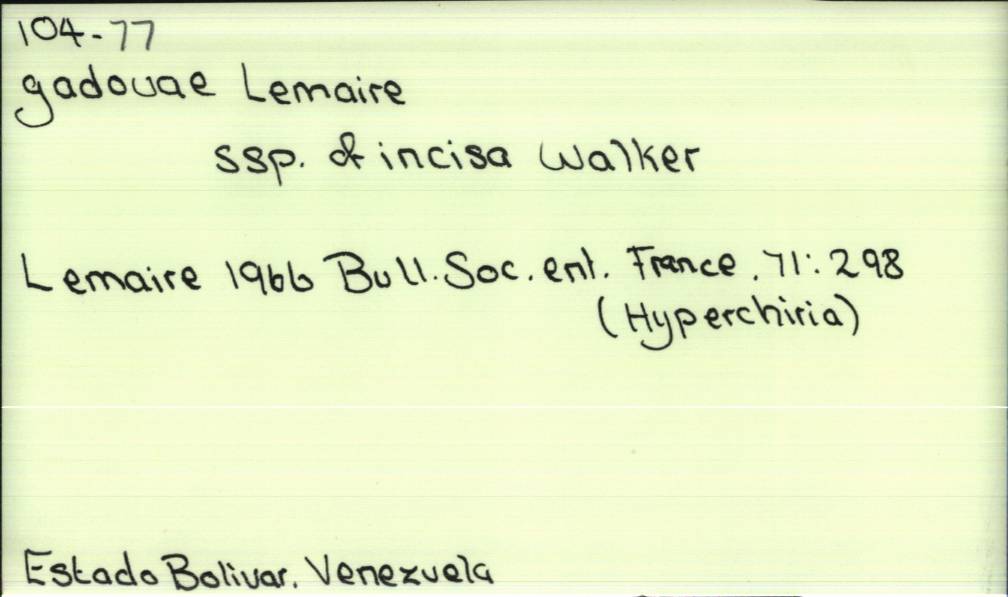 104-77
gadouae Lemaire
ssp. of incisa Walker
Lemaire 1966 Bull. Soc. ent. France. 71: 298
(Hyperchiria)
Estado Bolivar. Venezuela